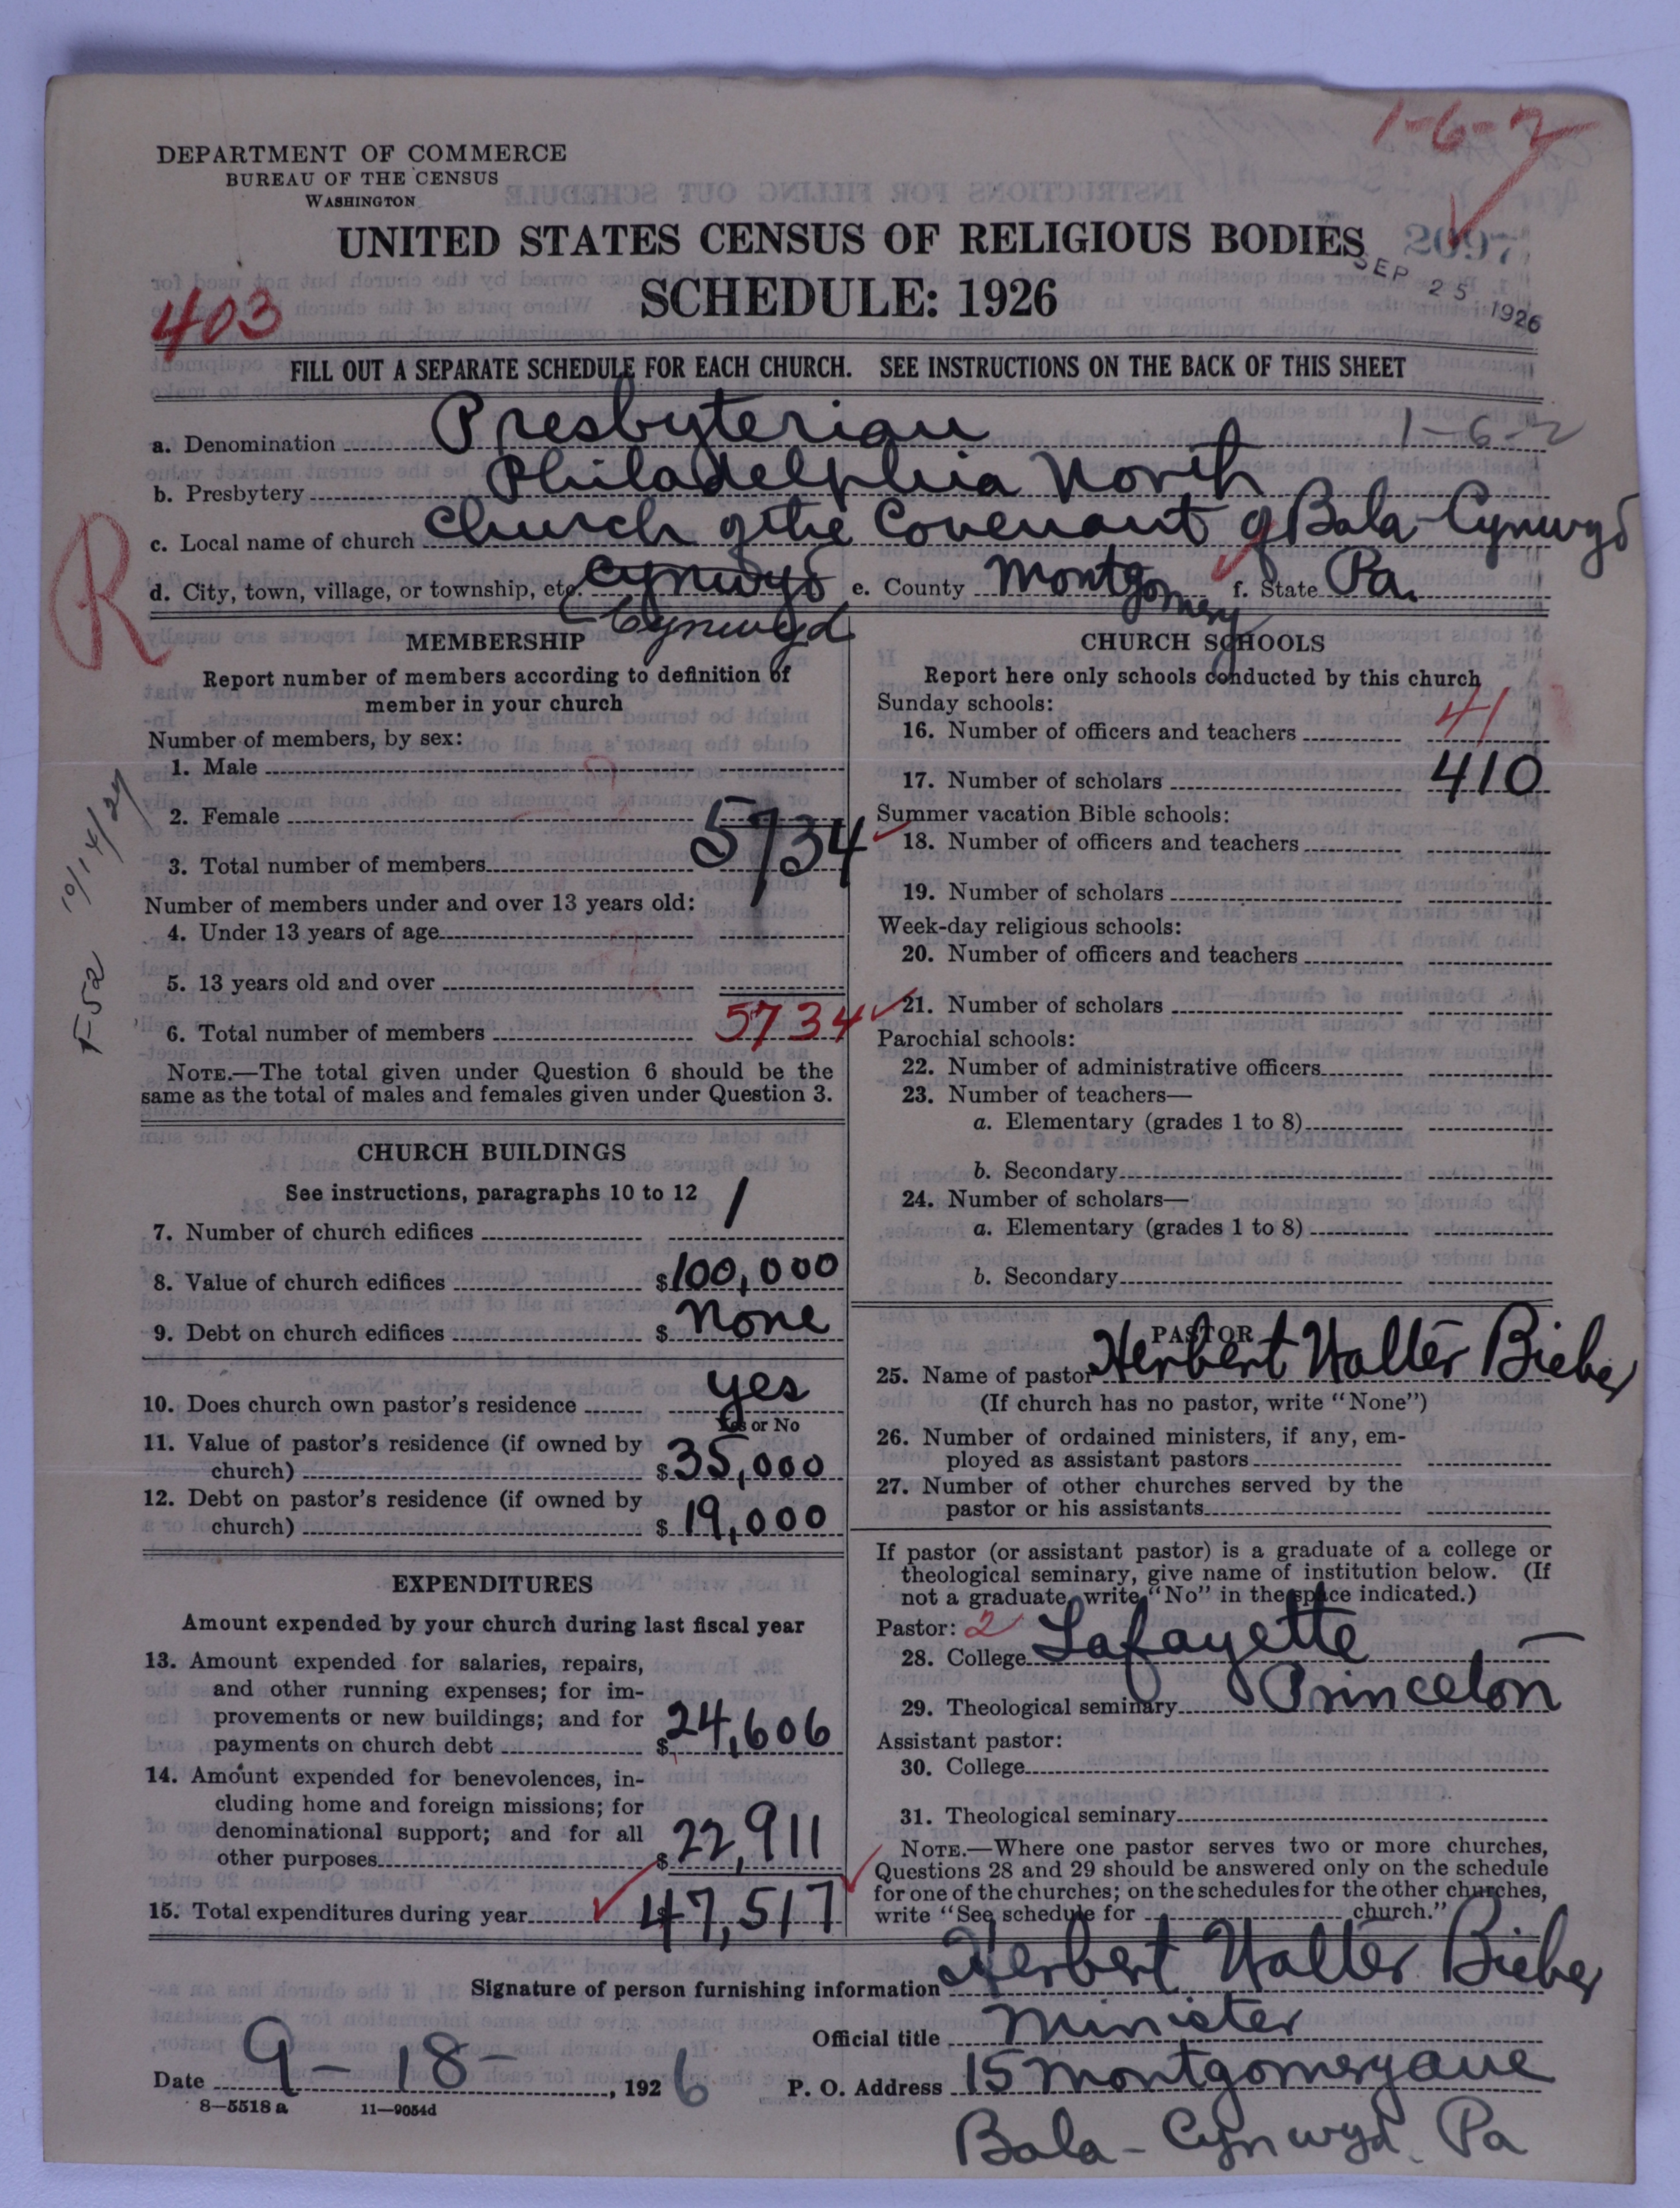 1-6-2
DEPARTMENT OF COMMERCE
BUREAU OF THE CENSUS
WASHINGTON
UNITED STATES CENSUS OF RELIGIOUS BODIES
2097
SEP 25 1926
SCHEDULE: 1926
403
FILL OUT A SEPARATE SCHEDULE FOR EACH CHURCH. SEE INSTRUCTIONS ON THE BACK OF THIS SHEET
a. Denomination Presbyterian 1-6-2
b. Presbytery Philadelphia North
c. Local name of church Church of the Covenant of Bala-Cynwyd
R
d. City, town, village, or township, etc. Cynwyd e. County Montgomery f. State Pa.
Cynwyd
MEMBERSHIP
Report number of members according to definition of
member in your church
Number of members, by sex:
1. Male
2. Female
3. Total number of members 5734
Number of members under and over 13 years old:
4. Under 13 years of age
5. 13 years old and over
6. Total number of members 5734
NOTE.—The total given under Question 6 should be the
same as the total of males and females given under Question 3.
F-52 10/14/27
CHURCH BUILDINGS
See instructions, paragraphs 10 to 12
7. Number of church edifices 1
8. Value of church edifices $100,000
9. Debt on church edifices $ None
10. Does church own pastor's residence yes
Yes or No
11. Value of pastor's residence (if owned by
church) $35,000
12. Debt on pastor's residence (if owned by
church) $19,000
EXPENDITURES
Amount expended by your church during last fiscal year
13. Amount expended for salaries, repairs,
and other running expenses; for im-
provements or new buildings; and for
payments on church debt $24,606
14. Amount expended for benevolences, in-
cluding home and foreign missions; for
denominational support; and for all
other purposes $22,911
15. Total expenditures during year 47,517
CHURCH SCHOOLS
Report here only schools conducted by this church
Sunday schools:
16. Number of officers and teachers 41
17. Number of scholars 410
Summer vacation Bible schools:
18. Number of officers and teachers
19. Number of scholars
Week-day religious schools:
20. Number of officers and teachers
21. Number of scholars
Parochial schools:
22. Number of administrative officers
23. Number of teachers—
a. Elementary (grades 1 to 8)
b. Secondary
24. Number of scholars—
a. Elementary (grades 1 to 8)
b. Secondary
PASTOR
25. Name of pastor Herbert Walter Bieber
(If church has no pastor, write "None")
26. Number of ordained ministers, if any, em-
ployed as assistant pastors
27. Number of other churches served by the
pastor or his assistants
If pastor (or assistant pastor) is a graduate of a college or
theological seminary, give name of institution below. (If
not a graduate, write "No" in the space indicated.)
Pastor: 2
28. College Lafayette
29. Theological seminary Princeton
Assistant pastor:
30. College
31. Theological seminary
NOTE.—Where one pastor serves two or more churches,
Questions 28 and 29 should be answered only on the schedule
for one of the churches; on the schedules for the other churches,
write "See schedule for church."
Signature of person furnishing information Herbert Walter Bieber
Official title Minister
Date 9-18-, 1926 P. O. Address 15 Montgomery ave
8—5518 a 11—9054d
Bala-Cynwyd. Pa